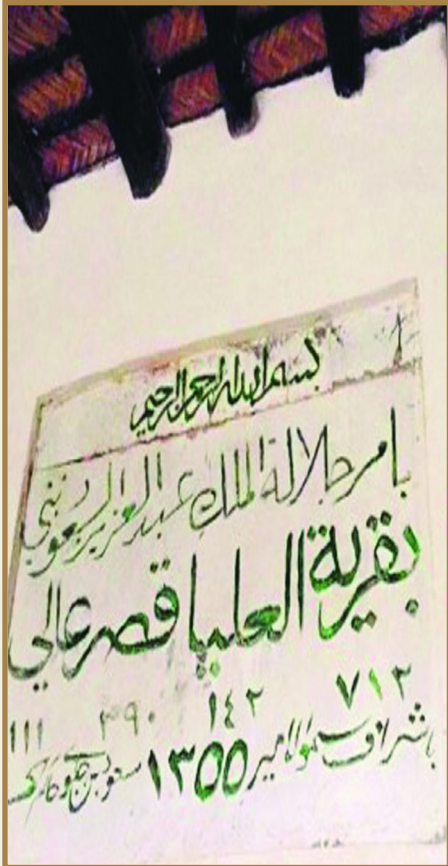 بسم الله الرحمن الرحيم
بامر جلالة الملك عبد العزيز السعود بني
بقرية العليا قصر عالي
٧١٢ ١٤٢ ٣٩٠ ١١١
باشراف سمو الامير ١٣٥٥ سعود بن جلوي